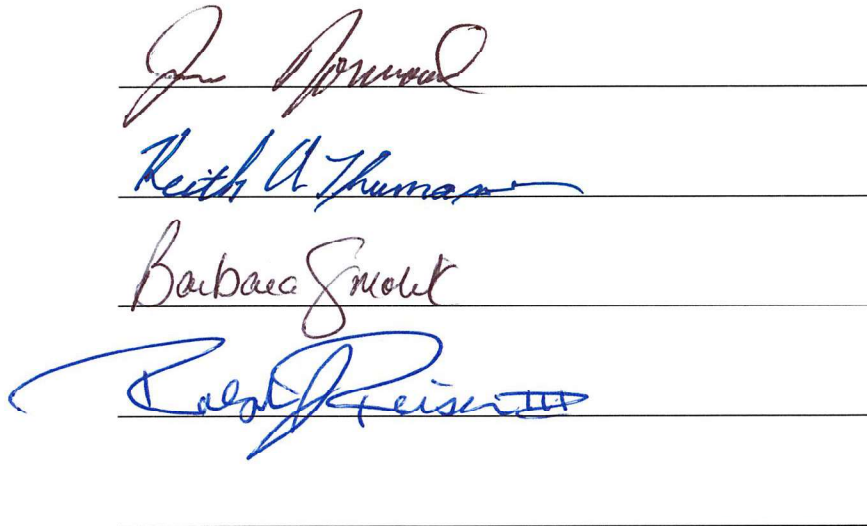 Jim Norwood
Keith A Thumann
Barbara Smolik
Ralph J Reiser III